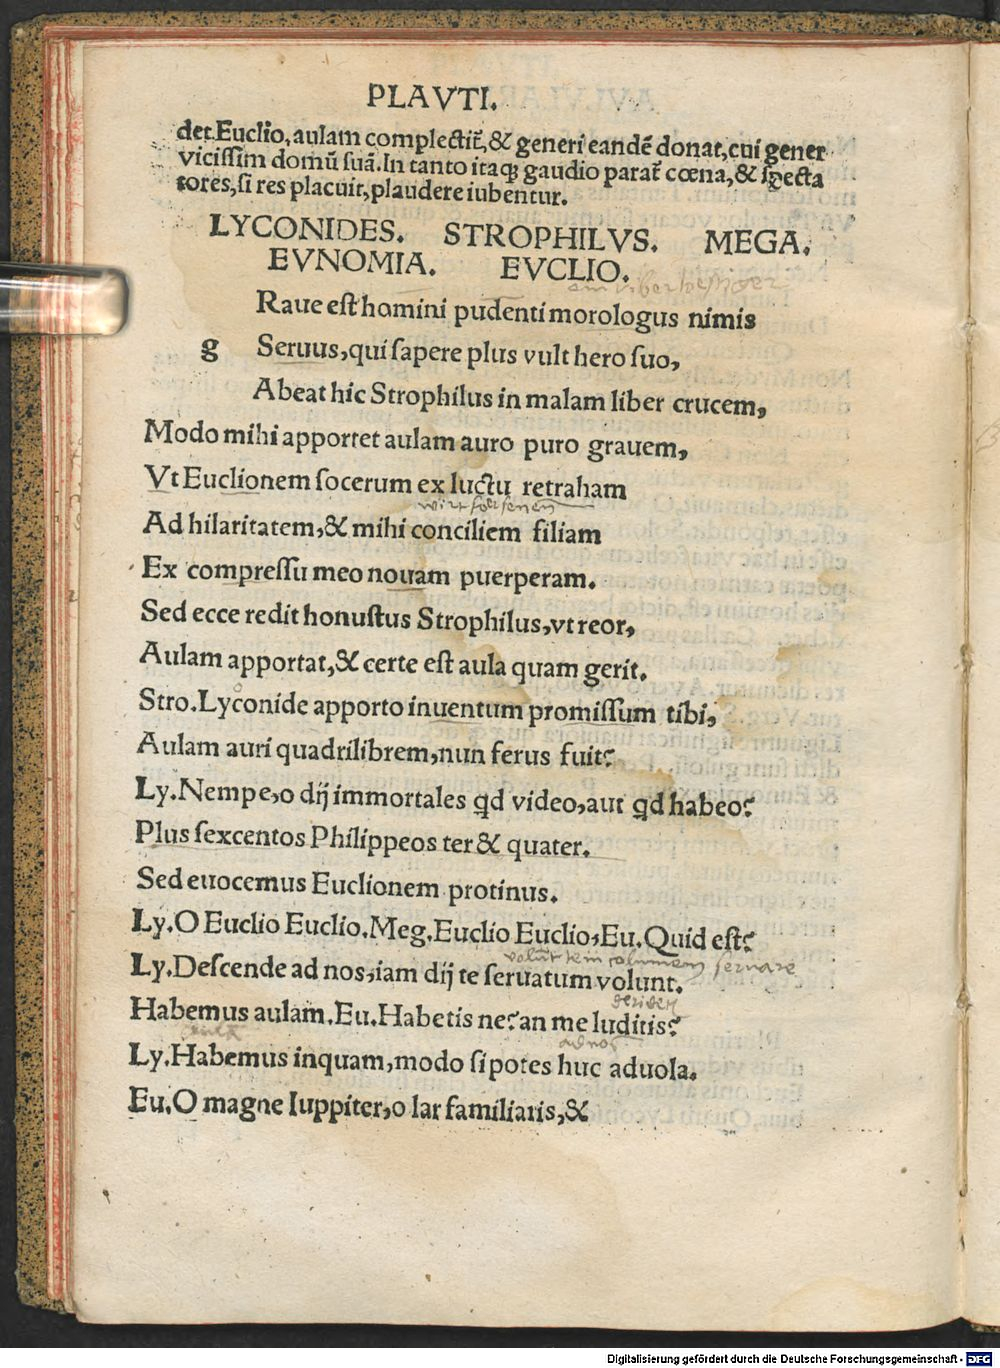 PLAVTI.
det. Euclio, aulam complectit̃, & generi eandē donat, cui gener
vicissim domū suā. In tanto itaqȝ gaudio parat̃ cœna, & specta
tores, si res placuit, plaudere iubentur.
LYCONIDES. STROPHILVS. MEGA.
EVNOMIA. EVCLIO.
Raue est homini pudenti morologus nimis
g Seruus, qui sapere plus vult hero suo,
Abeat hic Strophilus in malam liber crucem,
Modo mihi apportet aulam auro puro grauem,
Vt Euclionem socerum ex luctu retraham
Ad hilaritatem, & mihi conciliem filiam
Ex compressu meo nouam puerperam.
Sed ecce redit honustus Strophilus, vt reor,
Aulam apportat, & certe est aula quam gerit.
Stro. Lyconide apporto inuentum promissum tibi,
Aulam auri quadrilibrem, nun ferus fuit?
Ly. Nempe, o dij immortales qd video, aut qd habeo?
Plus sexcentos Philippeos ter & quater.
Sed euocemus Euclionem protinus.
Ly. O Euclio Euclio. Meg. Euclio Euclio, Eu. Quid est?
volūt te incolumem seruare
Ly. Descende ad nos, iam dij te seruatum volunt.
Habemus aulam. Eu. Habetis ne? an me luditis?
ad nos
Ly. Habemus inquam, modo si potes huc aduola.
Eu. O magne Iuppiter, o lar familiaris, &
Digitalisierung gefördert durch die Deutsche Forschungsgemeinschaft - DFG